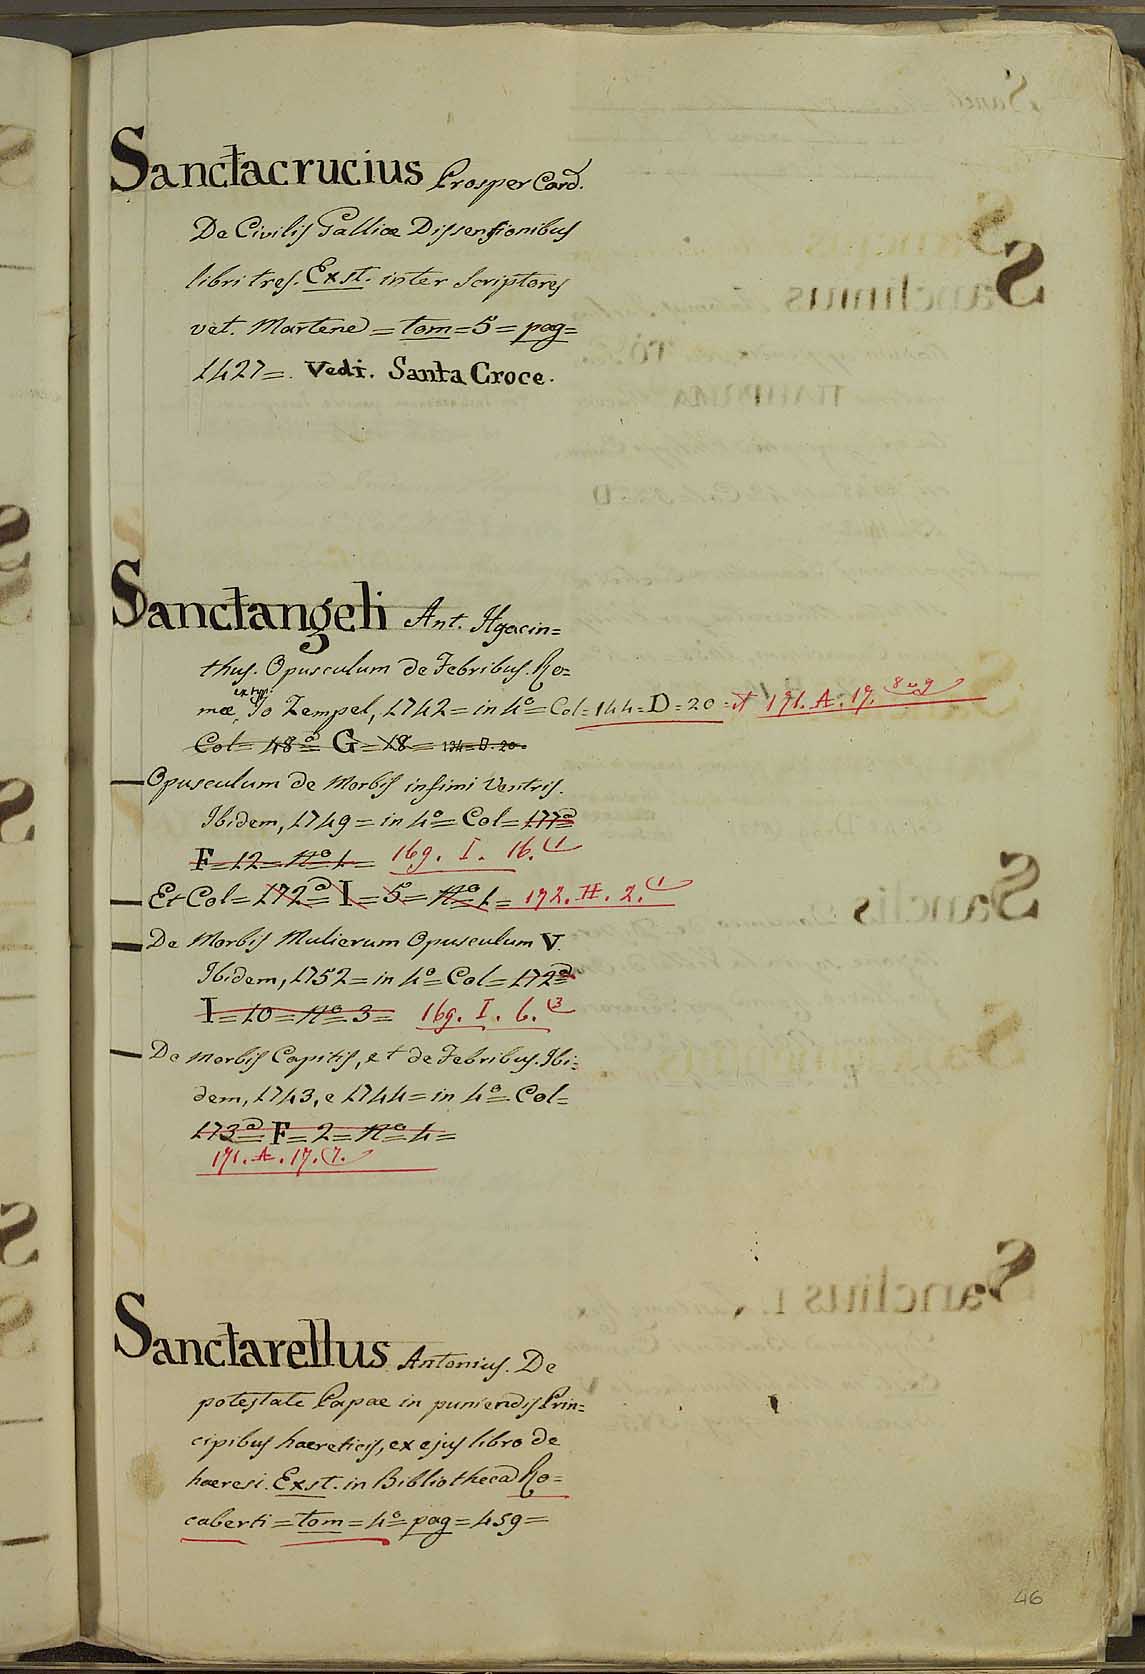 Sanctacrucius Prosper Card.
De Civilis Galliæ Dissensionibus
libri tres. Exst. inter Scriptores
vet. Martene = tom = 5 = pag =
1427 =. Vedi. Santa Croce.
Sanctangeli Ant. Hyacin=
thus. Opusculum de Febribus. Ro=
mæ, ex typ. Jo Zempel, 1742 = in 4º = Col = 144 = D = 20 = et 191. A. 17. 8 u 9
Col = 48ª = G = 18 = 134 = D. 20.
Opusculum de Morbis infimi Ventris.
Ibidem, 1749 = in 4º = Col = 177ª
F = 12 = Nº 1 = 169. I. 16. (1
Et Col = 172ª I = 5 = Nº 1 = 172. H. 2. (1
De Morbis Mulierum Opusculum V.
Ibidem, 1752 = in 4º Col = 172ª
I = 10 = Nº 3 = 169. I. 6. (3
De Morbis Capitis, et de Febribus. Ibi=
dem, 1743, e 1744 = in 4º = Col =
173ª = F = 2 = Nº 4 =
191. A. 17. (7.
Sanctarellus Antonius. De
potestate Papae in puniendis Prin=
cipibus haereticis, ex ejus libro de
haeresi. Exst. in Bibliotheca Ro=
caberti = tom = 4º = pag = 459 =
46